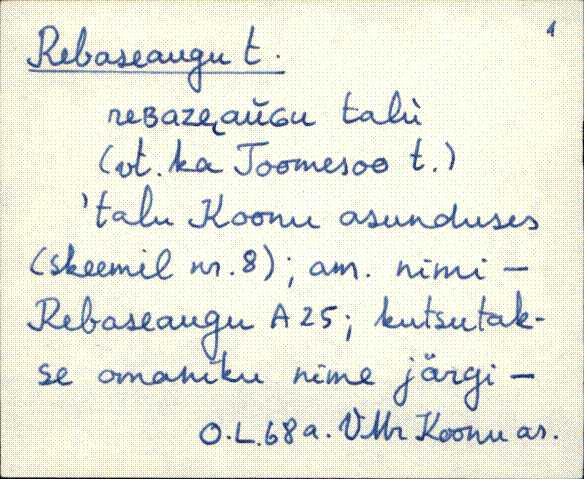 1
Rebaseaugu t.
reʙazęaŭɢu talù
(vt. ka Toomesoo t.)
'talu Koonu asunduses
(skeemil nr. 8); am. nimi –
Rebaseaugu A 25; kutsutak-
se omaniku nime järgi –
O.L. 68 a. VMr Koonu as.